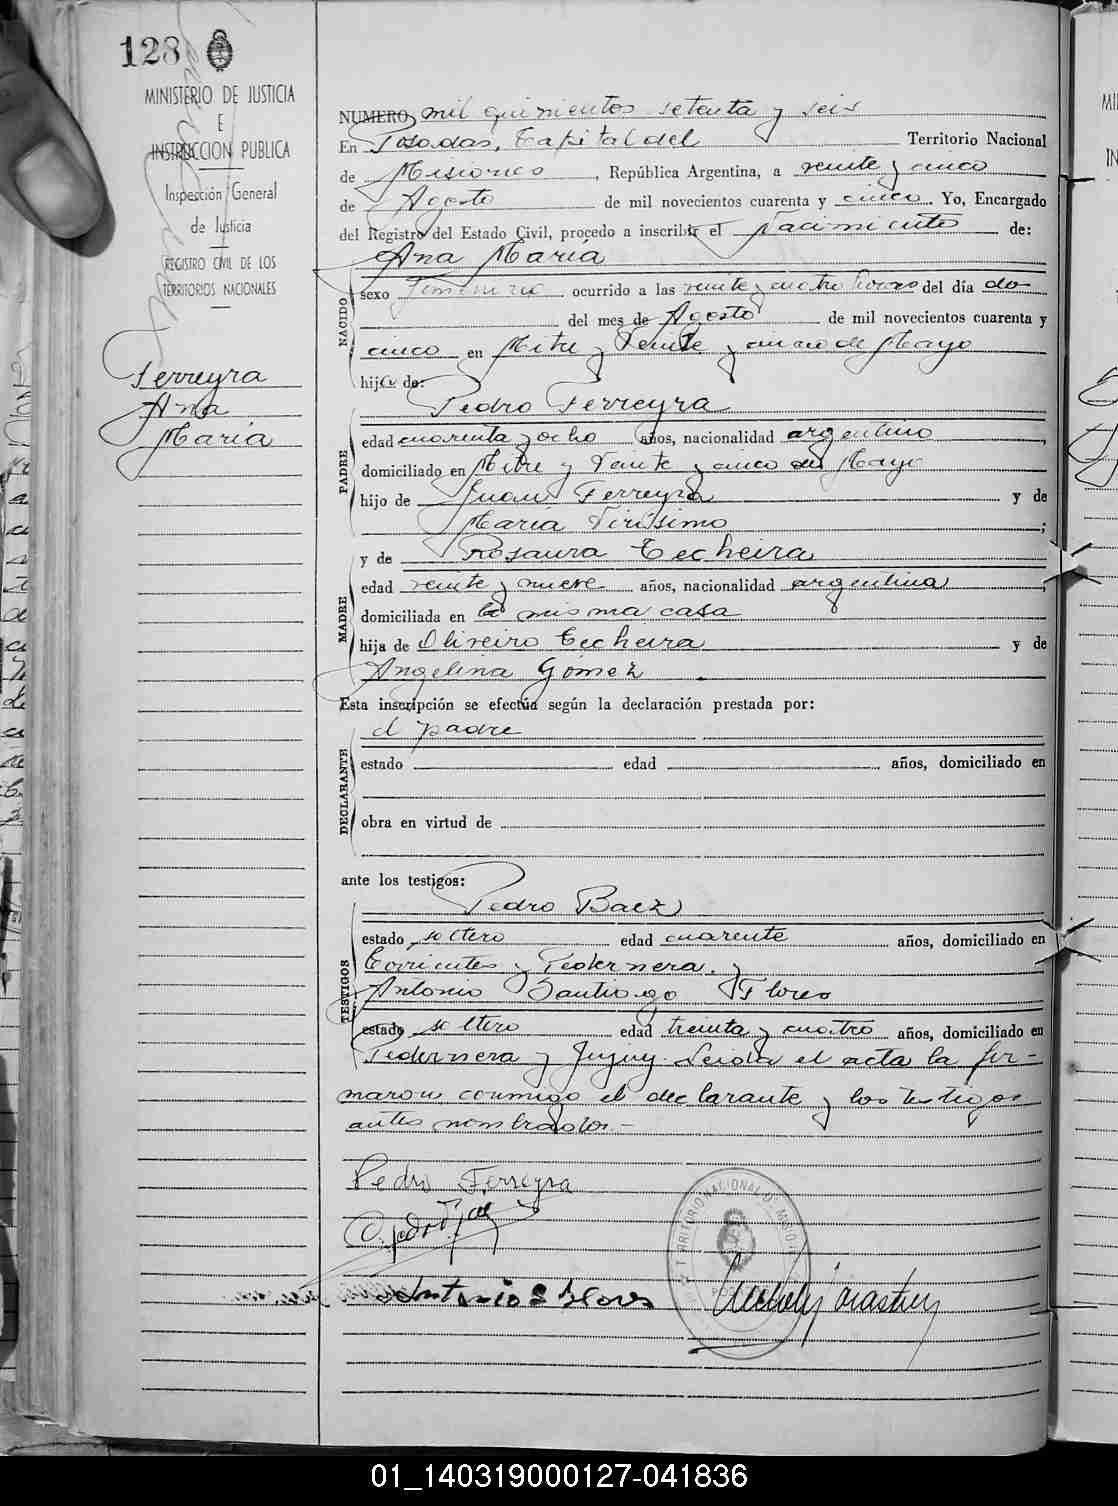 128
MINISTERIO DE JUSTICIA
E
INSTRUCCION PUBLICA
Inspección General
de Justicia
REGISTRO CIVIL DE LOS
TERRITORIOS NACIONALES
Ferreyra
Ana
María
NUMERO mil quinientos setenta y seis
En Posadas, Capital del Territorio Nacional
de Misiones, República Argentina, a veinte y cinco
de Agosto de mil novecientos cuarenta y cinco Yo, Encargado
del Registro del Estado Civil, procedo a inscribir el Nacimiento de:
Ana María
NACIDO
sexo femenino ocurrido a las veinte y cuatro horas del día dos
del mes de Agosto de mil novecientos cuarenta y
cinco en Mitre y Veinte y cinco de Mayo
hija de:
Pedro Ferreyra
PADRE
edad cuarenta y ocho años, nacionalidad argentino,
domiciliado en Mitre y Veinte y cinco de Mayo
hijo de Juan Ferreyra y de
María Viríssimo;
y de Rosaura Techeira
MADRE
edad veinte y nueve años, nacionalidad argentina,
domiciliada en la misma casa
hija de Oliveiro Techeira y de
Angelina Gómez
Esta inscripción se efectúa según la declaración prestada por:
el padre
DECLARANTE
estado edad años, domiciliado en
obra en virtud de
ante los testigos:
Pedro Baez
TESTIGOS
estado soltero edad cuarenta años, domiciliado en
Corrientes y Pedernera. y
Antonio Santiago Flores
estado soltero edad treinta y cuatro años, domiciliado en
Pedernera y Jujuy. Leida el acta la fir-
maron conmigo el declarante y los testigos
antes nombrados.-
Pedro Ferreyra
Antonio S Flores
TERRITORIO NACIONAL DE MISIONES
01_140319000127-041836